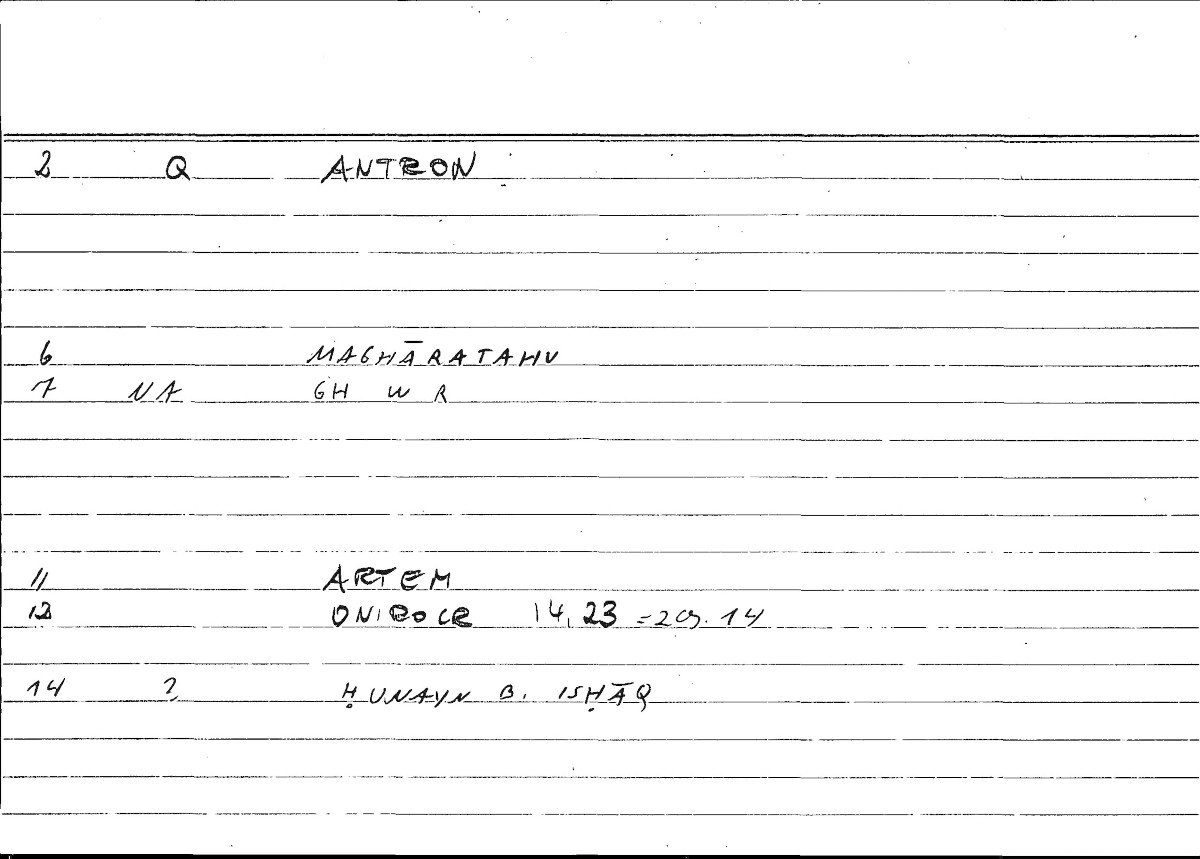 2 Q ANTRON
6 MAGHĀRATAHU
7 NA GH W R
11 ARTEM
12 ONIROCR 14,23 = 209.14
14 2 ḤUNAYN B. ISḤĀQ